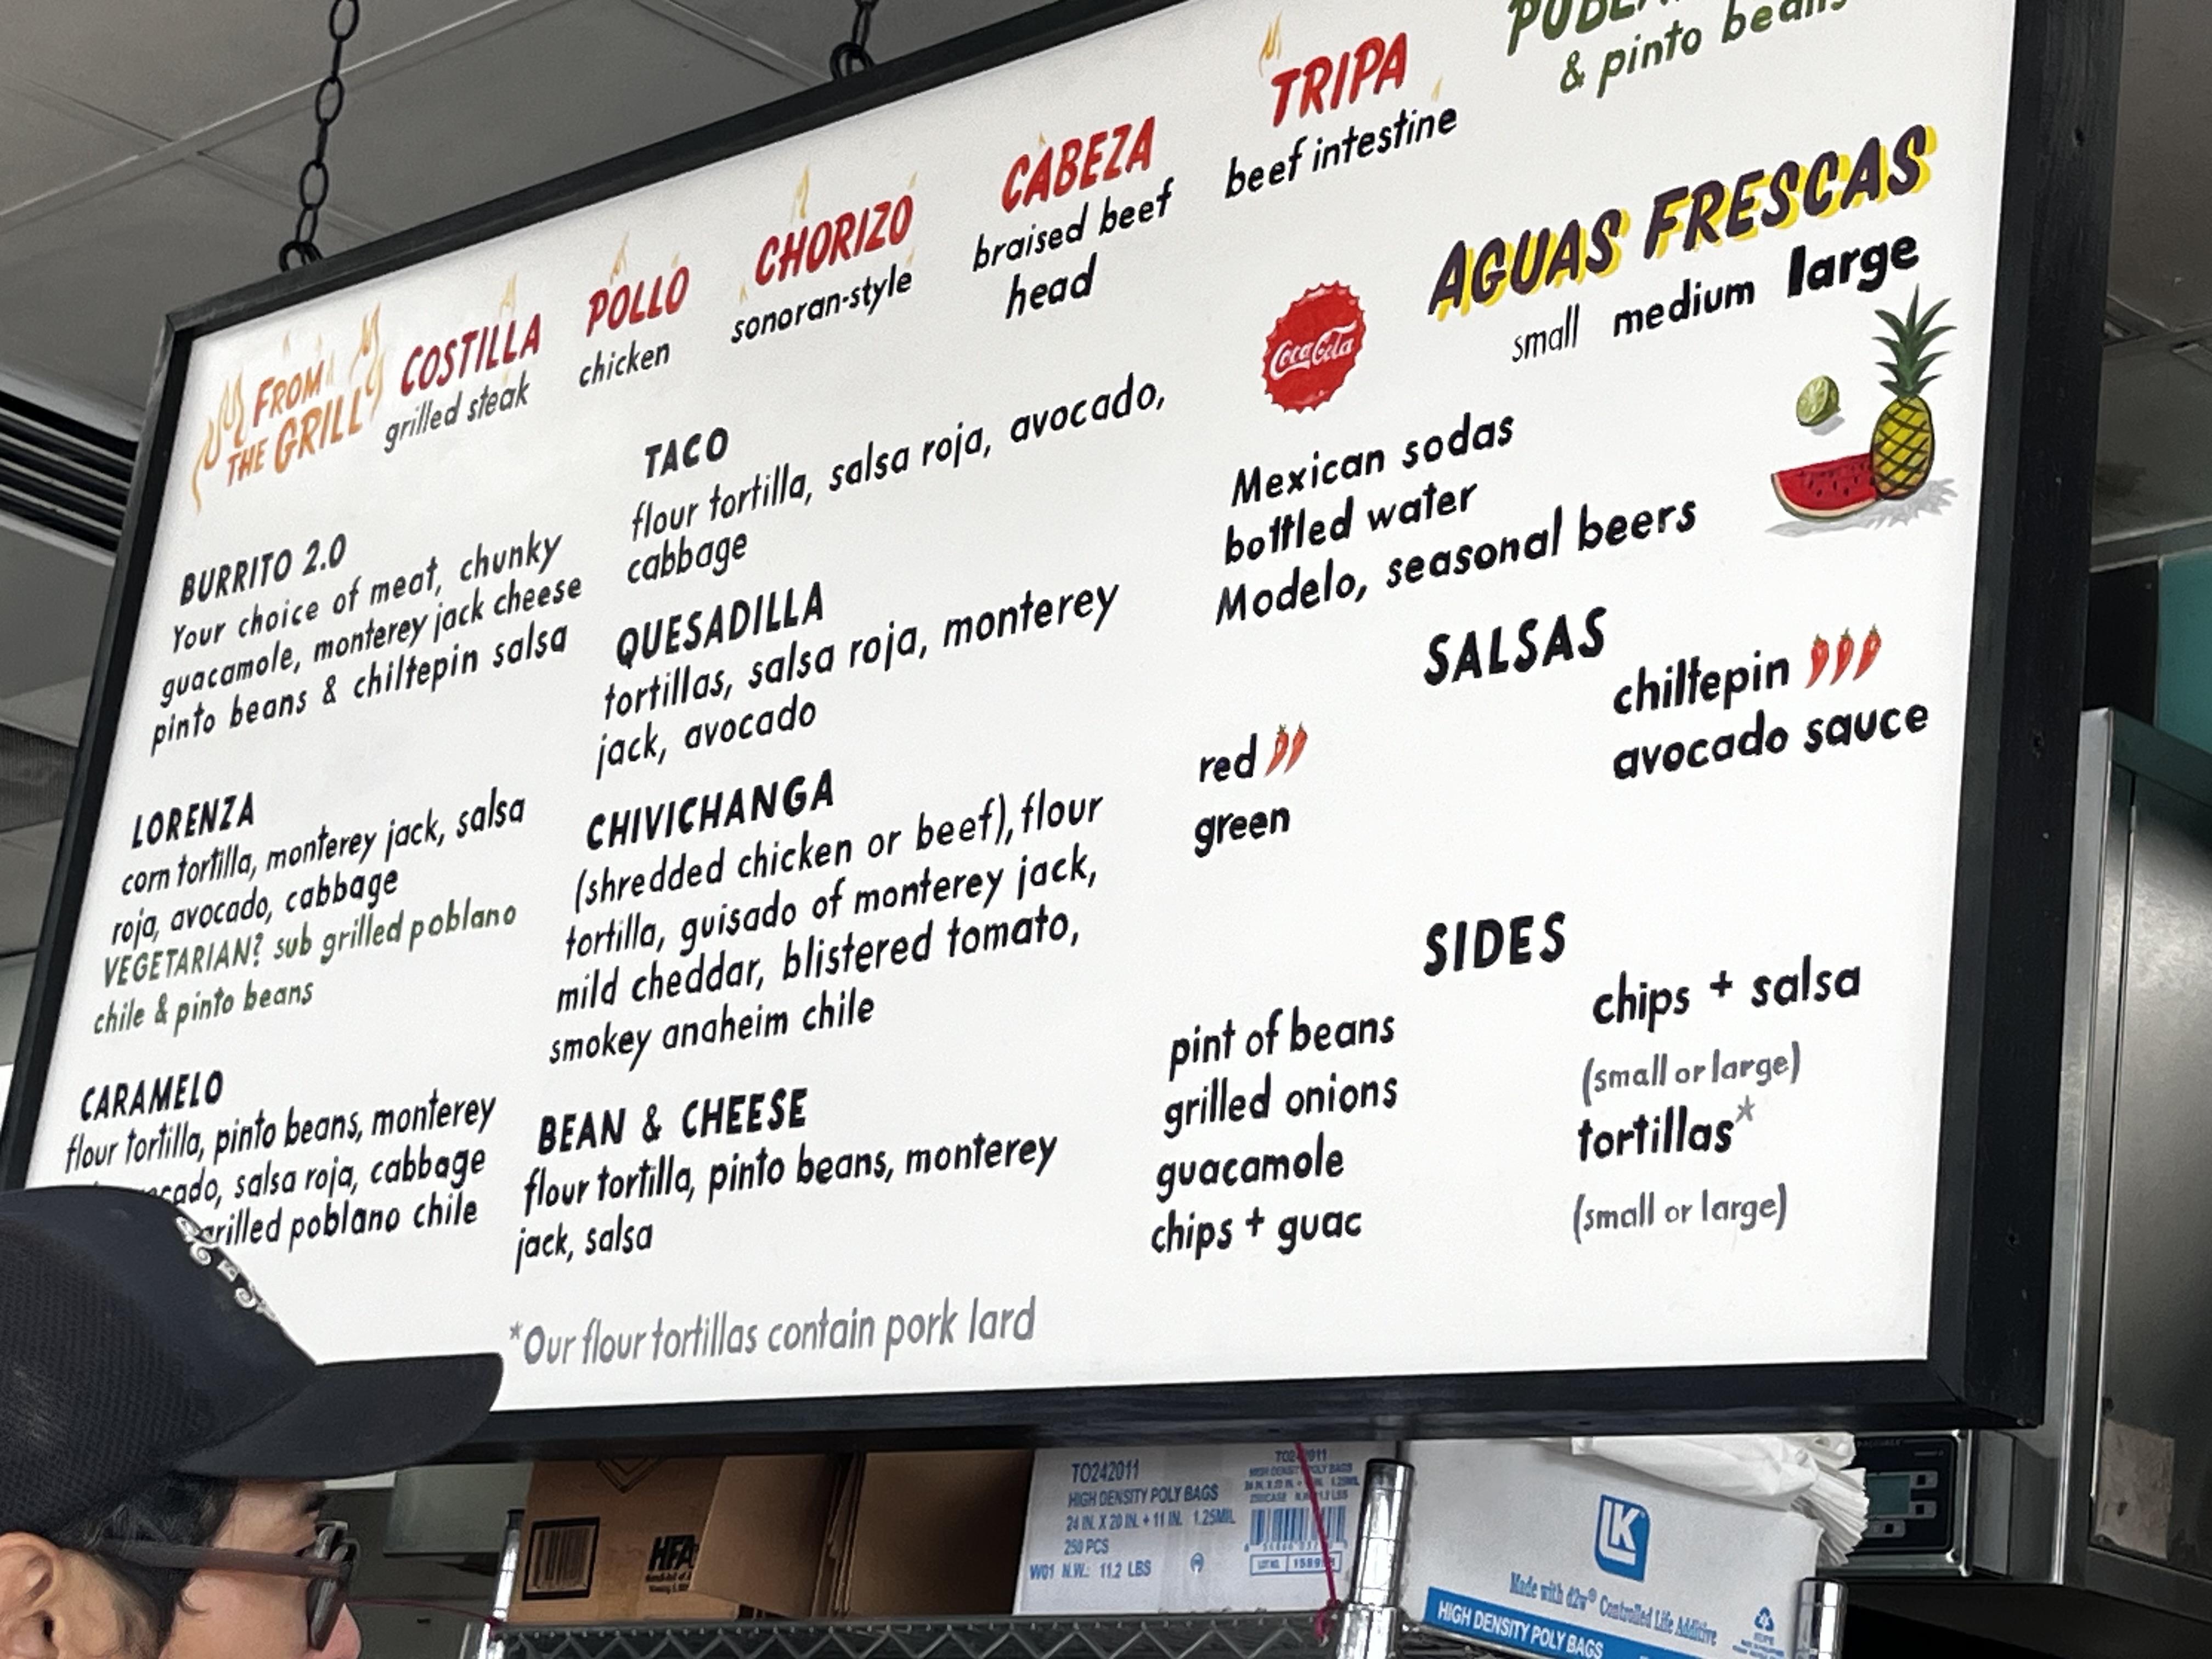 & pinto beans
FROM
THE GRILL
COSTILLA
grilled steak
POLLO
chicken
CHORIZO
sonoran-style
CABEZA
braised beef
head
TRIPA
beef intestine
BURRITO 2.0
Your choice of meat, chunky
guacamole, monterey jack cheese
pinto beans & chiltepin salsa
LORENZA
corn tortilla, monterey jack, salsa
roja, avocado, cabbage
VEGETARIAN? sub grilled poblano
chile & pinto beans
CARAMELO
flour tortilla, pinto beans, monterey
salsa roja, cabbage
poblano chile
TACO
flour tortilla, salsa roja, avocado,
cabbage
QUESADILLA
tortillas, salsa roja, monterey
jack, avocado
CHIVICHANGA
(shredded chicken or beef), flour
tortilla, guisado of monterey jack,
mild cheddar, blistered tomato,
smokey anaheim chile
BEAN & CHEESE
flour tortilla, pinto beans, monterey
jack, salsa
*Our flour tortillas contain pork lard
AGUAS FRESCAS
small medium large
Coca-Cola
Mexican sodas
bottled water
Modelo, seasonal beers
SALSAS
red
green
chiltepin
avocado sauce
SIDES
pint of beans
grilled onions
guacamole
chips + guac
chips + salsa
(small or large)
tortillas*
(small or large)
HFA
TO242011
HIGH DENSITY POLY BAGS
24 IN. X 20 IN. + 11 IN. 1.25MIL
250 PCS
W01 N.W.: 11.2 LBS
LK
Made with d2w® Controlled Life Additive
HIGH DENSITY POLY BAGS